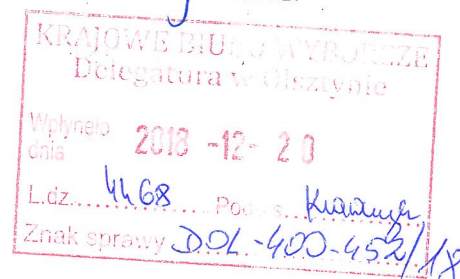 KRAJOWE BIURO WYBORCZE
Delegatura w Olsztynie
Wpłynęło
dnia 2018 -12- 20
L.dz. 4468 Podpis
Znak sprawy DOL-400-452/18